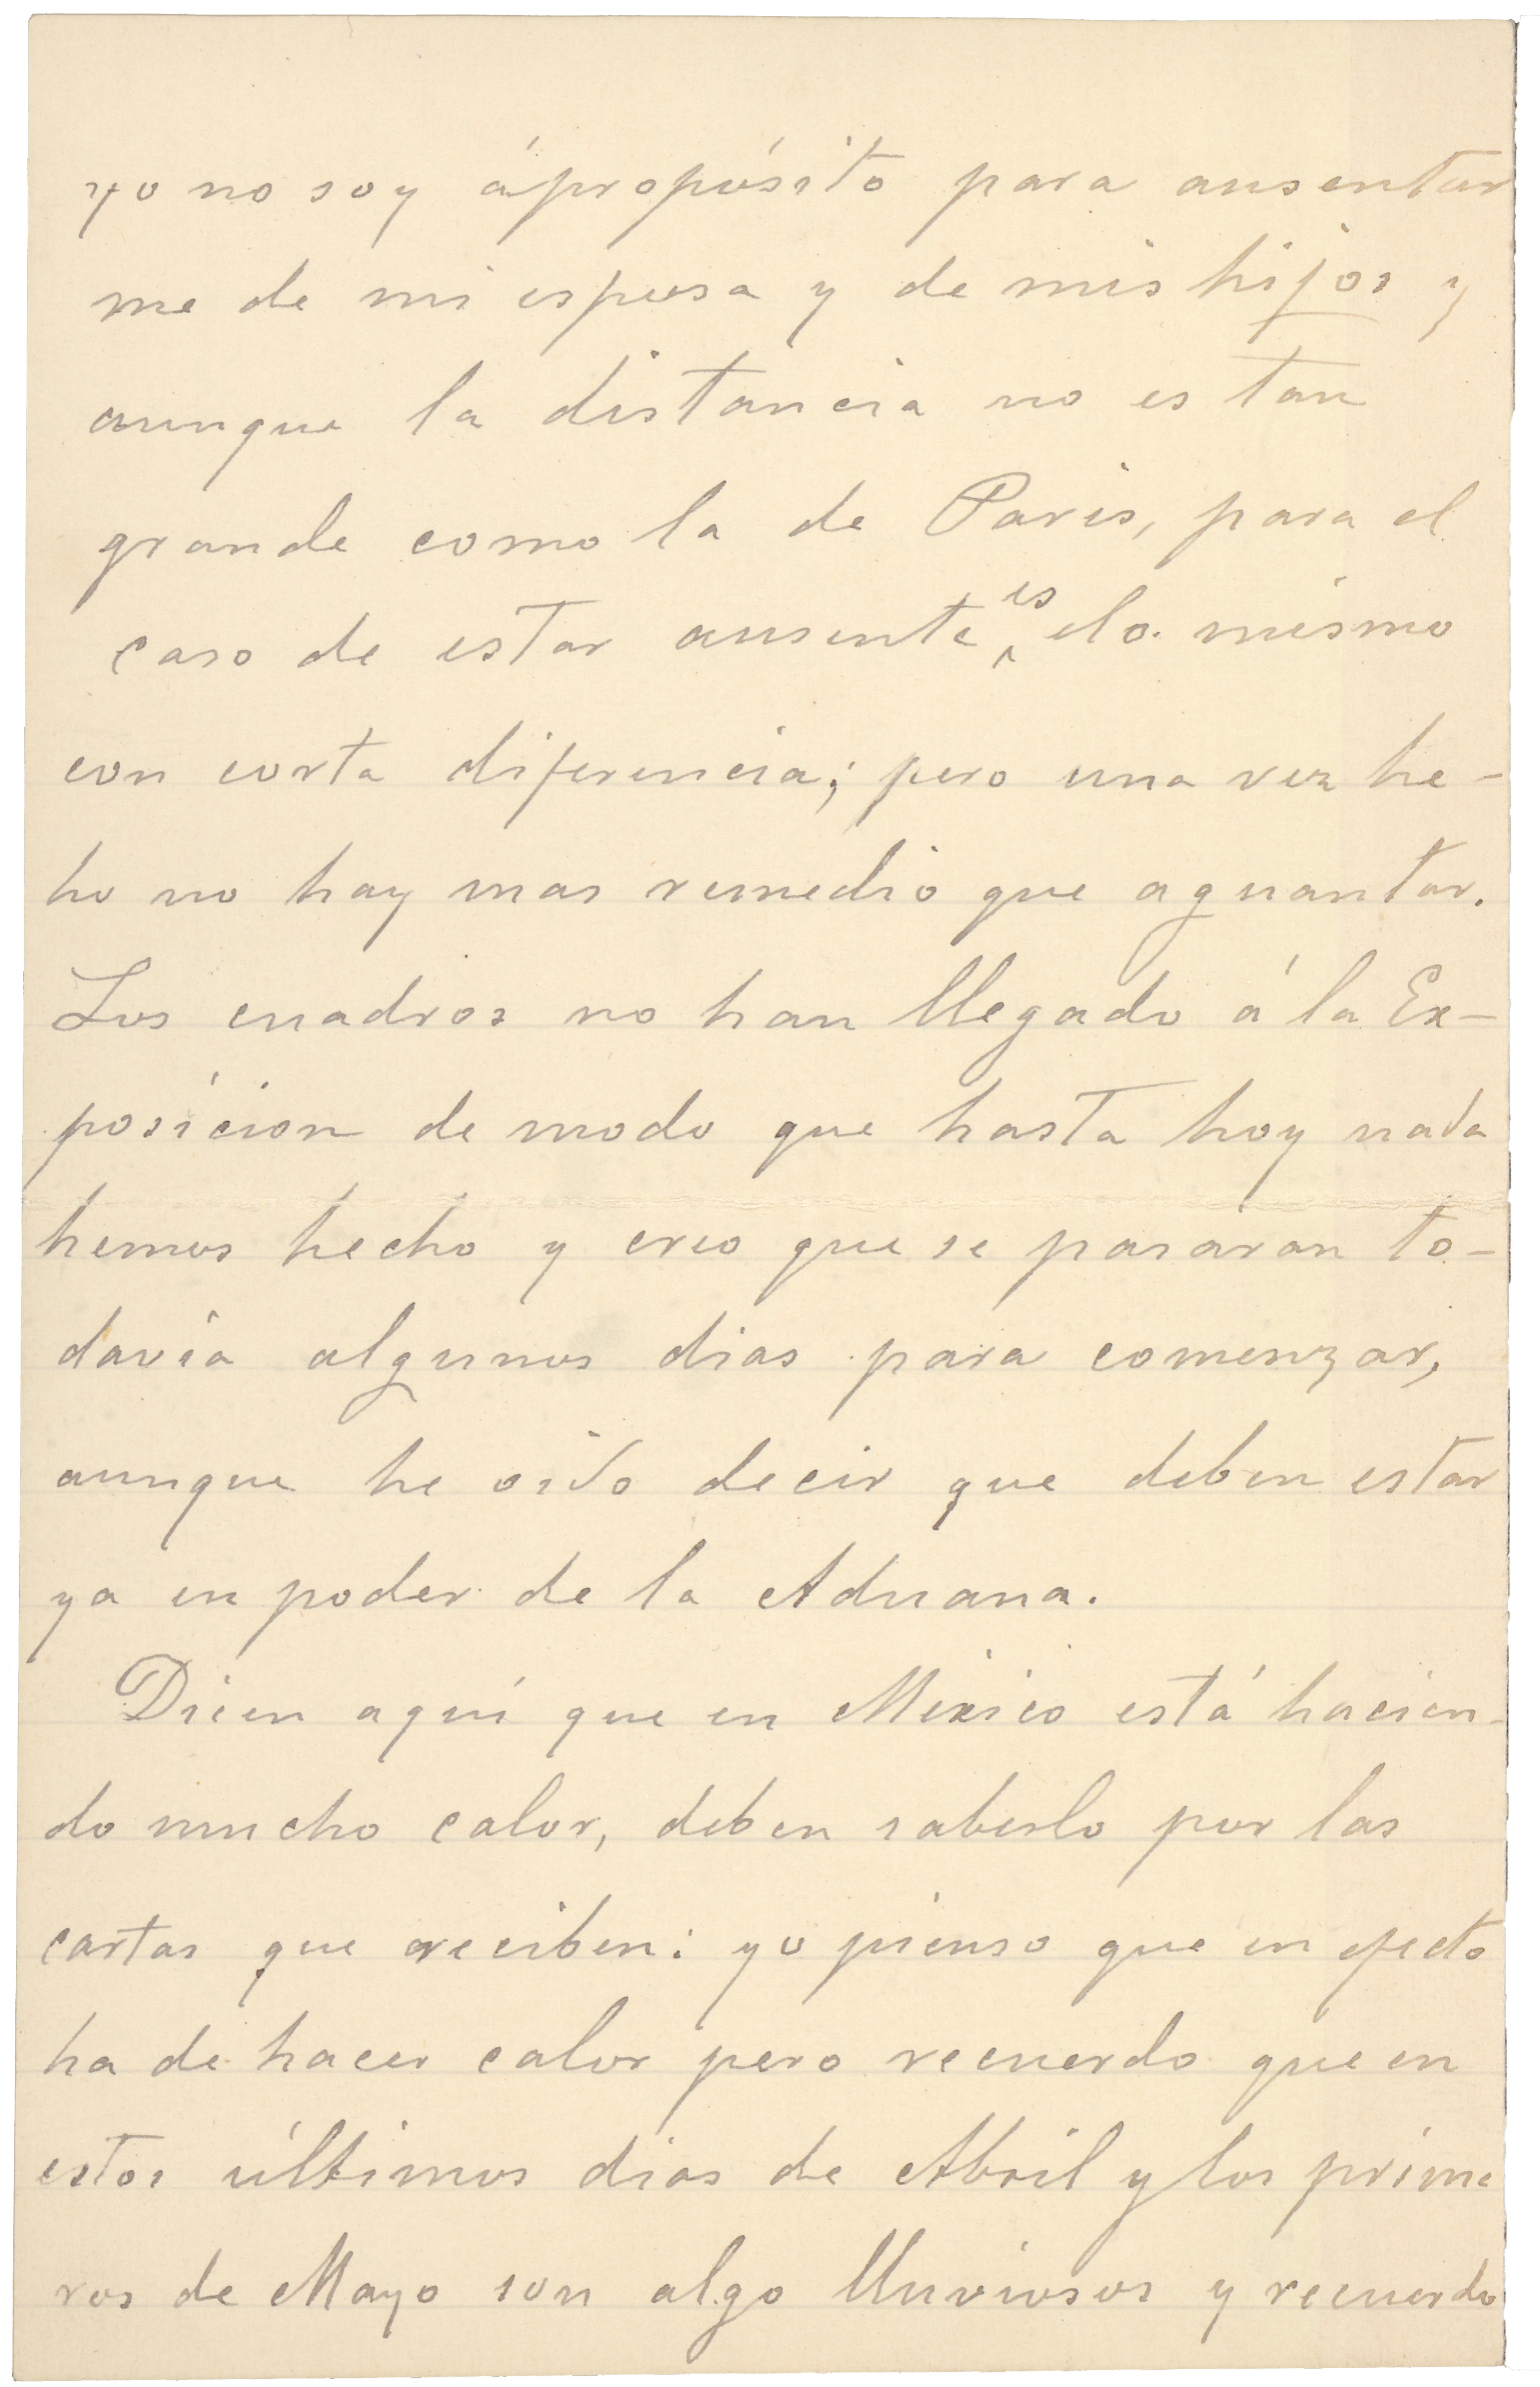 yo no soy ápropósito para ausentar
me de mi esposa y de mis hijos y
aunque la distancia no es tan
grande como la de Paris, para el
caso de estar ausente es elo mismo
con corta diferencia; pero una vez he-
ho no hay mas remedio que aguantar.
Los cuadros no han llegado á la Ex-
posicion de modo que hasta hoy nada
hemos hecho y creo que se pasaran to-
davia algunos dias para comenzar,
aunque he oido decir que deben estar
ya en poder de la Aduana.
Dicen aquí que en Mexico está hacien-
do mucho calor, deben saberlo por las
cartas que reciben: yo pienso que en efecto
ha de hacer calor pero recuerdo que en
estos últimos dias de Abril y los prime
ros de Mayo son algo lluviosos y recuerdo